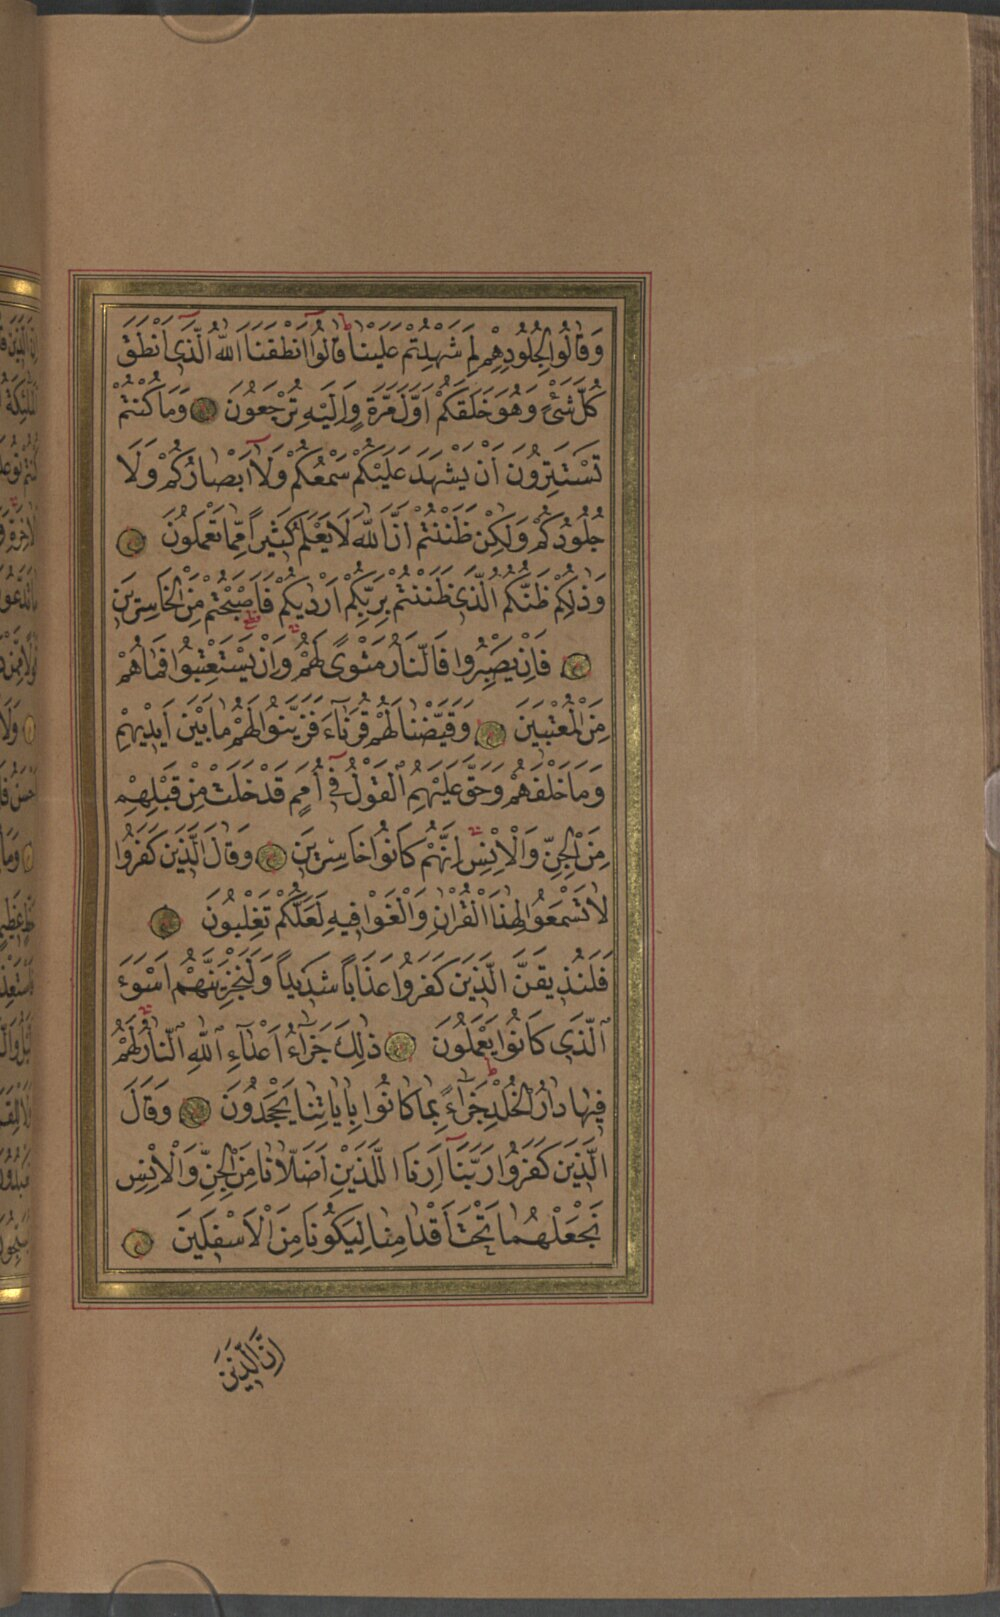 وَقَالُوا لِجُلُودِهِمْ لِمَ شَهِدْتُمْ عَلَيْنَا قَالُوا اَنْطَقَنَا اللّٰهُ الَّذٖى اَنْطَقَ
كُلَّ شَيْءٍ وَهُوَ خَلَقَكُمْ اَوَّلَ مَرَّةٍ وَاِلَيْهِ تُرْجَعُونَ وَمَا كُنْتُمْ
تَسْتَتِرُونَ اَنْ يَشْهَدَ عَلَيْكُمْ سَمْعُكُمْ وَلَٓا اَبْصَارُكُمْ وَلَا
جُلُودُكُمْ وَلٰكِنْ ظَنَنْتُمْ اَنَّ اللّٰهَ لَا يَعْلَمُ كَثٖيرًا مِمَّا تَعْمَلُونَ
وَذٰلِكُمْ ظَنُّكُمُ الَّذٖى ظَنَنْتُمْ بِرَبِّكُمْ اَرْدٰيكُمْ فَاَصْبَحْتُمْ مِنَ الْخَاسِرٖينَ
فَاِنْ يَصْبِرُوا فَالنَّارُ مَثْوًى لَهُمْ وَاِنْ يَسْتَعْتِبُوا فَمَا هُمْ
مِنَ الْمُعْتَبٖينَ وَقَيَّضْنَا لَهُمْ قُرَنَٓاءَ فَزَيَّنُوا لَهُمْ مَا بَيْنَ اَيْدٖيهِمْ
وَمَا خَلْفَهُمْ وَحَقَّ عَلَيْهِمُ الْقَوْلُ فٖٓى اُمَمٍ قَدْ خَلَتْ مِنْ قَبْلِهِمْ
مِنَ الْجِنِّ وَالْاِنْسِ اِنَّهُمْ كَانُوا خَاسِرٖينَ وَقَالَ الَّذٖينَ كَفَرُوا
لَا تَسْمَعُوا لِهٰذَا الْقُرْاٰنِ وَالْغَوْا فٖيهِ لَعَلَّكُمْ تَغْلِبُونَ
فَلَنُذٖيقَنَّ الَّذٖينَ كَفَرُوا عَذَابًا شَدٖيدًا وَلَنَجْزِيَنَّهُمْ اَسْوَءَ
الَّذٖى كَانُوا يَعْمَلُونَ ذٰلِكَ جَزَٓاءُ اَعْدَٓاءِ اللّٰهِ النَّارُ لَهُمْ
فٖيهَا دَارُ الْخُلْدِ جَزَٓاءً بِمَا كَانُوا بِاٰيَاتِنَا يَجْحَدُونَ وَقَالَ
الَّذٖينَ كَفَرُوا رَبَّنَٓا اَرِنَا الَّذَيْنِ اَضَلَّانَا مِنَ الْجِنِّ وَالْاِنْسِ
نَجْعَلْهُمَا تَحْتَ اَقْدَامِنَا لِيَكُونَا مِنَ الْاَسْفَلٖينَ
اِنَّ الَّذٖينَ